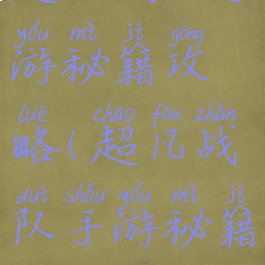 yóu mì jí gōng
游秘籍攻
lüè chāo fán zhàn
略(超凡战
duì shǒu yóu mì jí
队手游秘籍